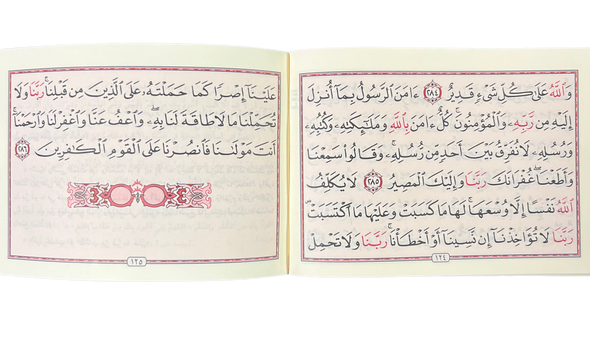 وَاللَّهُ عَلَىٰ كُلِّ شَيْءٍ قَدِيرٌ ﴿٢٨٤﴾ ءَامَنَ الرَّسُولُ بِمَآ أُنزِلَ
إِلَيْهِ مِن رَّبِّهِۦ وَالْمُؤْمِنُونَ ۚ كُلٌّ ءَامَنَ بِاللَّهِ وَمَلَٰٓئِكَتِهِۦ وَكُتُبِهِۦ
وَرُسُلِهِۦ لَا نُفَرِّقُ بَيْنَ أَحَدٍ مِّن رُّسُلِهِۦ ۚ وَقَالُوا۟ سَمِعْنَا
وَأَطَعْنَا ۖ غُفْرَانَكَ رَبَّنَا وَإِلَيْكَ الْمَصِيرُ ﴿٢٨٥﴾ لَا يُكَلِّفُ
اللَّهُ نَفْسًا إِلَّا وُسْعَهَا ۚ لَهَا مَا كَسَبَتْ وَعَلَيْهَا مَا اكْتَسَبَتْ ۗ
رَبَّنَا لَا تُؤَاخِذْنَآ إِن نَّسِينَآ أَوْ أَخْطَأْنَا ۚ رَبَّنَا وَلَا تَحْمِلْ
١٢٤
عَلَيْنَآ إِصْرًا كَمَا حَمَلْتَهُۥ عَلَى الَّذِينَ مِن قَبْلِنَا ۚ رَبَّنَا وَلَا
تُحَمِّلْنَا مَا لَا طَاقَةَ لَنَا بِهِۦ ۖ وَاعْفُ عَنَّا وَاغْفِرْ لَنَا وَارْحَمْنَآ ۚ
أَنتَ مَوْلَىٰنَا فَانصُرْنَا عَلَى الْقَوْمِ الْكَٰفِرِينَ ﴿٢٨٦﴾
١٢٥